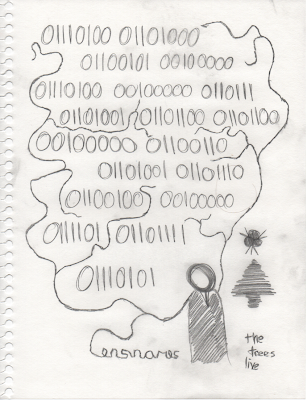 01110100 01101000
01100101 00100000
01110100 00100000 0110111
01101001 01101100 01101100
00100000 01100110
01101001 01101110
01100100 00100000
0111101 01101111
01110101
ensnares
the
trees
live